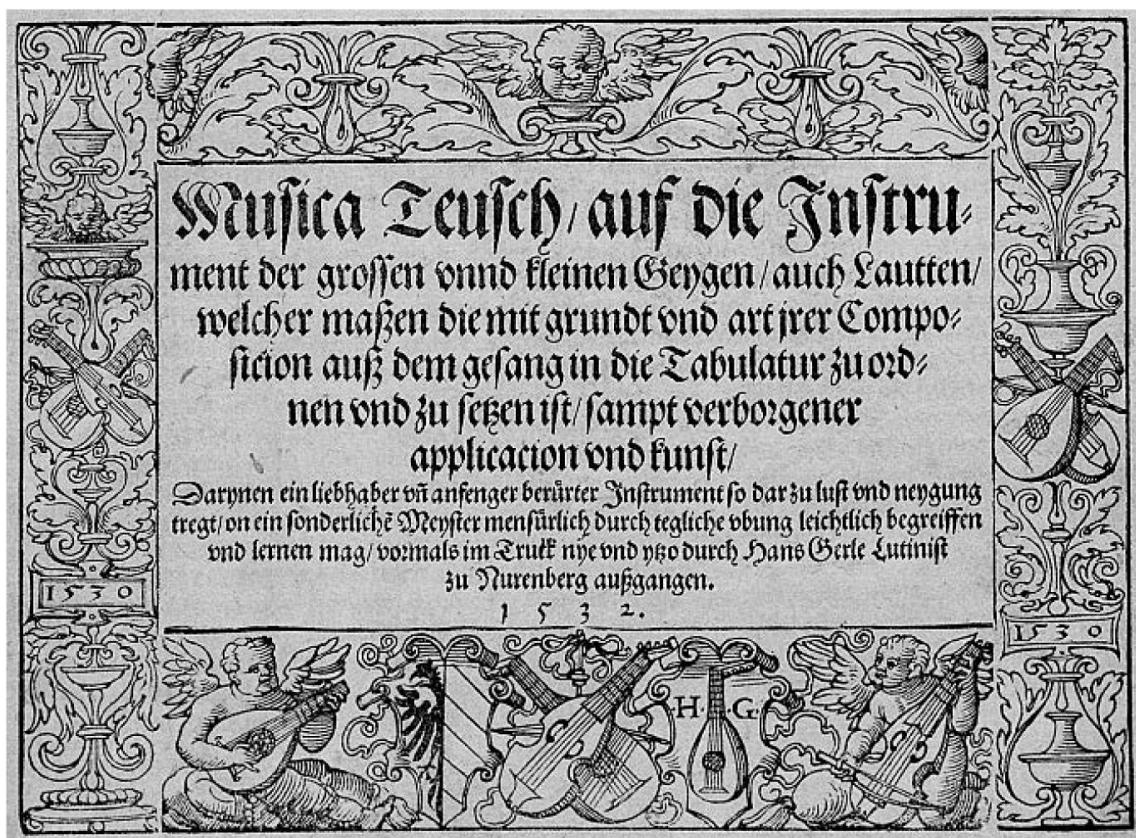 Musica Teusch/ auf die Instru⸗
ment der grossen vnnd kleinen Geygen/ auch Lautten/
welcher maßen die mit grundt vnd art jrer Compo⸗
sicion auß dem gesang in die Tabulatur zu ord⸗
nen vnd zu setzen ist/ sampt verborgener
applicacion vnd kunst/
Darynen ein liebhaber vñ anfenger berürter Instrument so dar zu lust vnd neygung
tregt/ on ein sonderlichẽ Meyster mensürlich durch tegliche vbung leichtlich begreiffen
vnd lernen mag/ vormals im Truck nye vnd ytzo durch Hans Gerle Lutinist
zu Nurenberg außgangen.
1 5 3 2.
1530
1530
H. G.